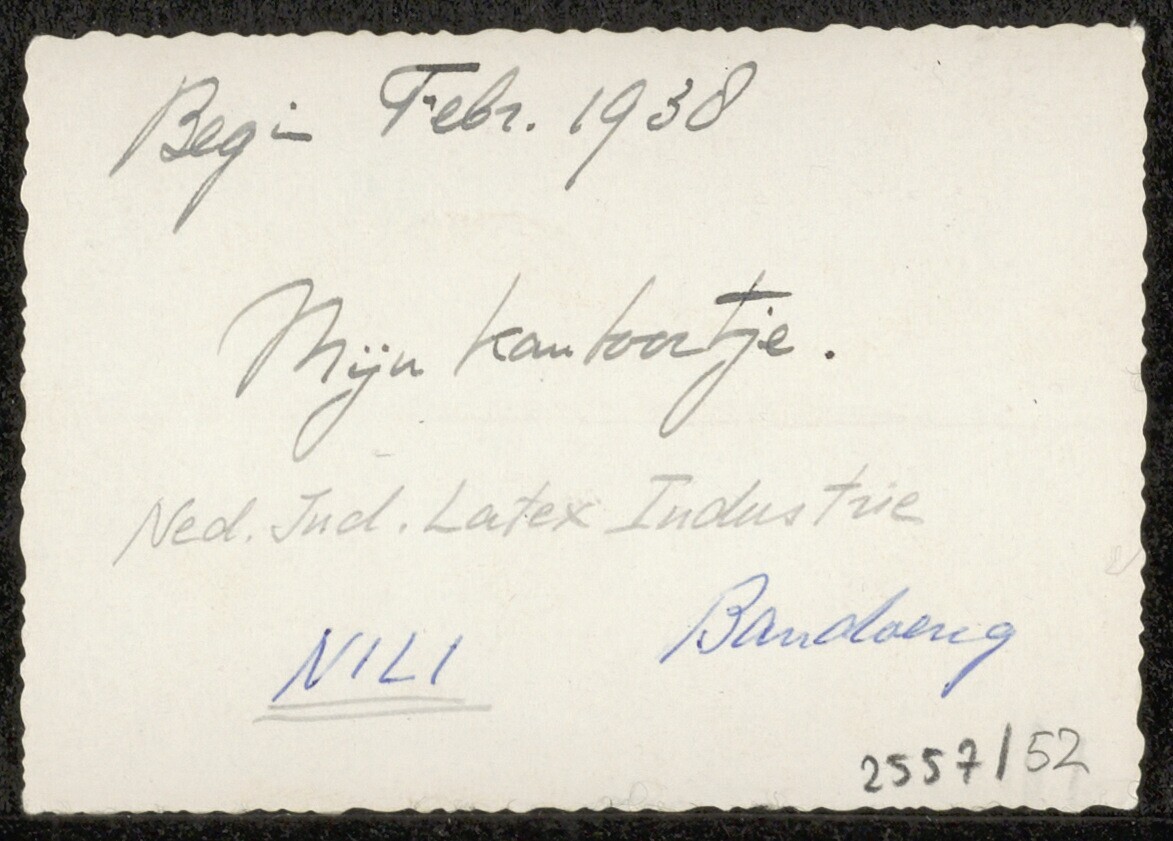 Begin Febr. 1938
Mijn kantoortje.
Ned. Ind. Latex Industrie
NILI Bandoeng
2557/52